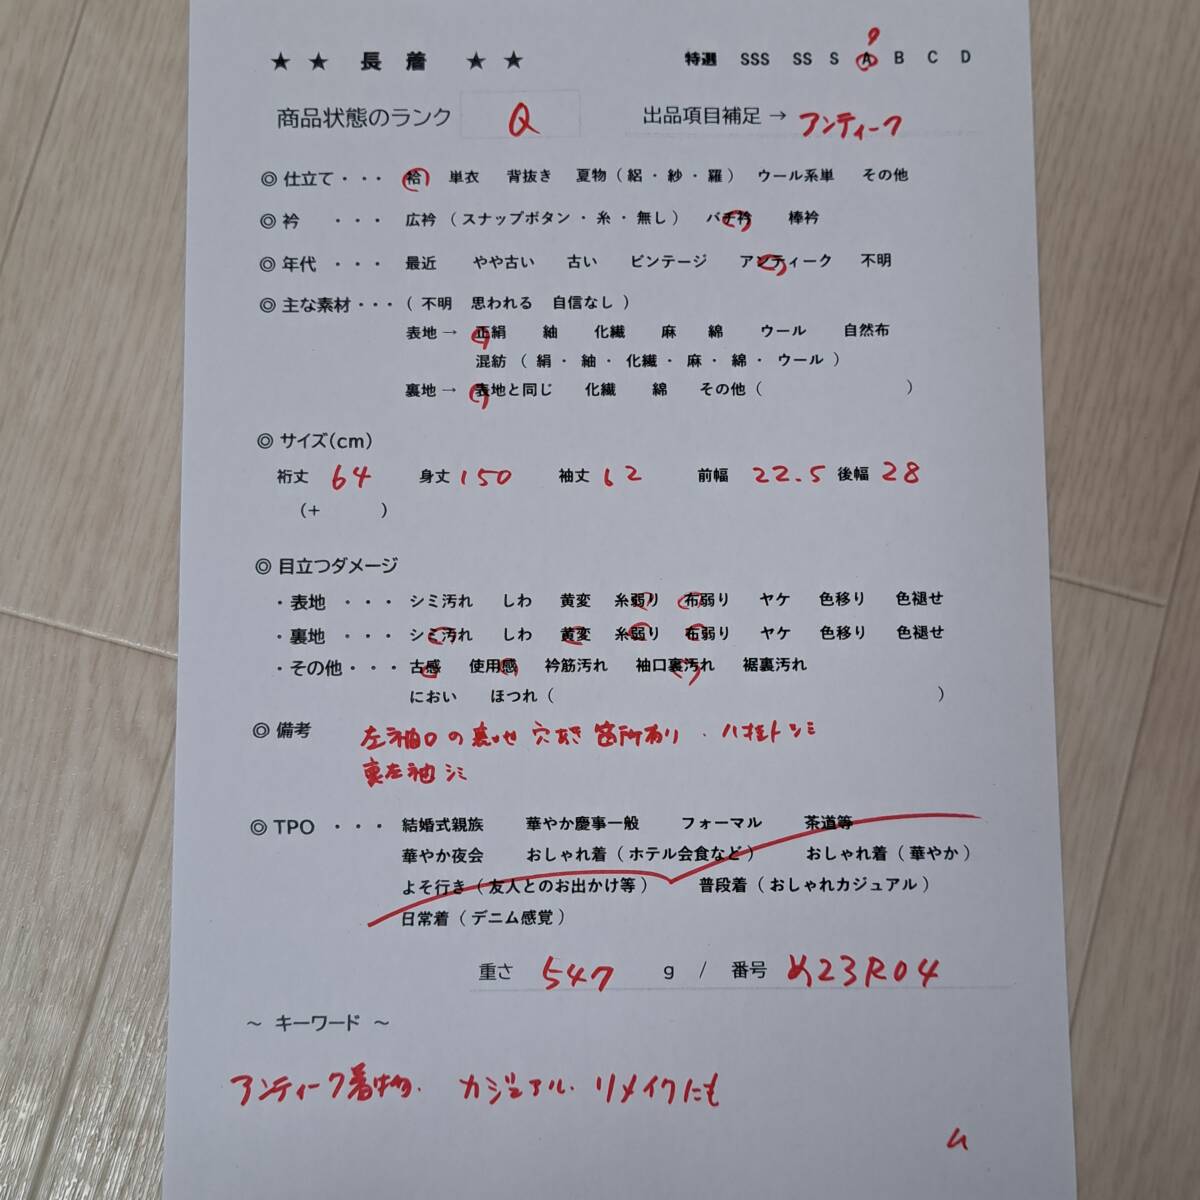 ★ ★ 長 着 ★ ★ 特選 SSS SS S A B C D
商品状態のランク Q 出品項目補足 → アンティーク
◎ 仕立て・・・ 袷 単衣 背抜き 夏物（絽・紗・羅） ウール系単 その他
◎ 衿 ・・・ 広衿（スナップボタン・糸・無し） バチ衿 棒衿
◎ 年代 ・・・ 最近 やや古い 古い ビンテージ アンティーク 不明
◎ 主な素材・・・（ 不明 思われる 自信なし ）
表地 → 正絹 紬 化繊 麻 綿 ウール 自然布
混紡（ 絹・紬・化繊・麻・綿・ウール ）
裏地 → 表地と同じ 化繊 綿 その他（ ）
◎ サイズ(cm)
裄丈 64 身丈 150 袖丈 62 前幅 22.5 後幅 28
（+ ）
◎ 目立つダメージ
・表地 ・・・ シミ汚れ しわ 黄変 糸弱り 布弱り ヤケ 色移り 色褪せ
・裏地 ・・・ シミ汚れ しわ 黄変 糸弱り 布弱り ヤケ 色移り 色褪せ
・その他・・・ 古感 使用感 衿筋汚れ 袖口裏汚れ 裾裏汚れ
におい ほつれ（ ）
◎ 備考 左袖口の裏地 穴あき箇所有り・八掛トシミ
裏左袖 シミ
◎ TPO ・・・ 結婚式親族 華やか慶事一般 フォーマル 茶道等
華やか夜会 おしゃれ着（ホテル会食など） おしゃれ着（華やか）
よそ行き（友人とのお出かけ等） 普段着（おしゃれカジュアル）
日常着（デニム感覚）
重さ 547 g / 番号 め23R04
～ キーワード ～
アンティーク着物. カジュアル. リメイクにも